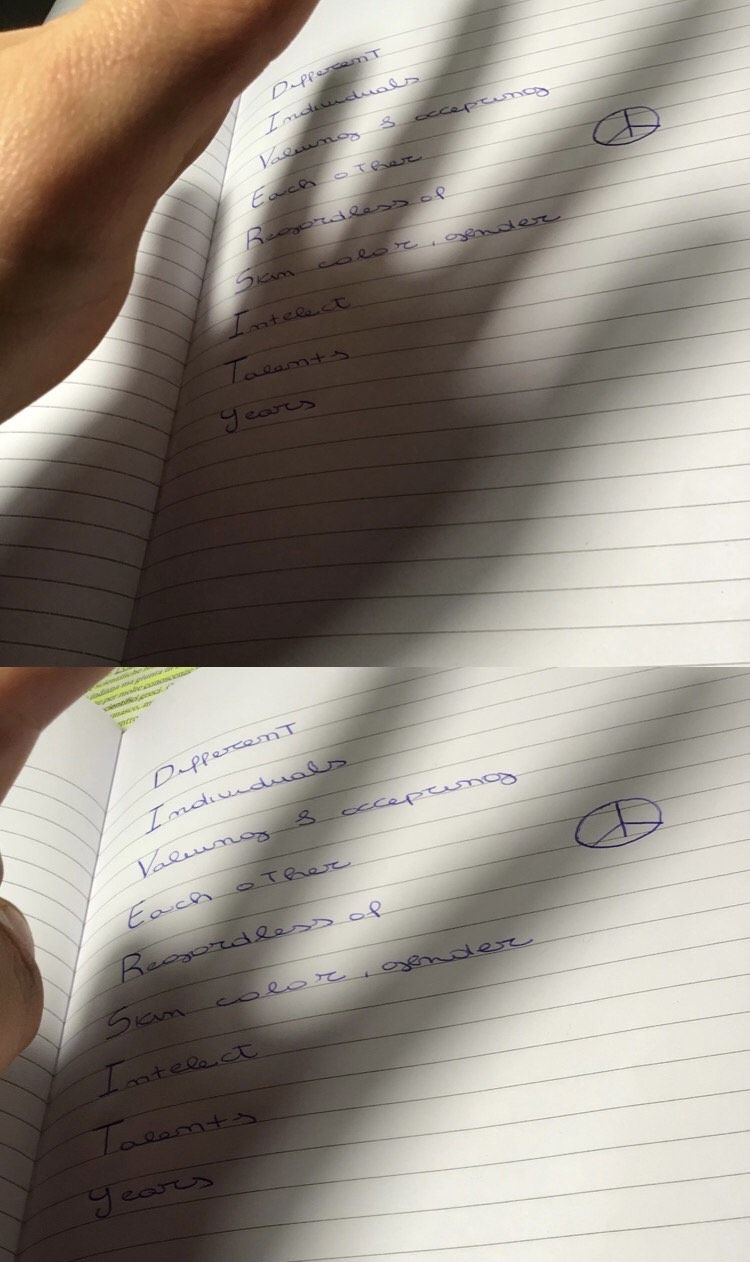 Different
Individuals
Valuing & accepting
Each other
Regardless of
Skin color, gender
Intelect
Talents
Years
Different
Individuals
Valuing & accepting
Each other
Regardless of
Skin color, gender
Intelect
Talents
Years